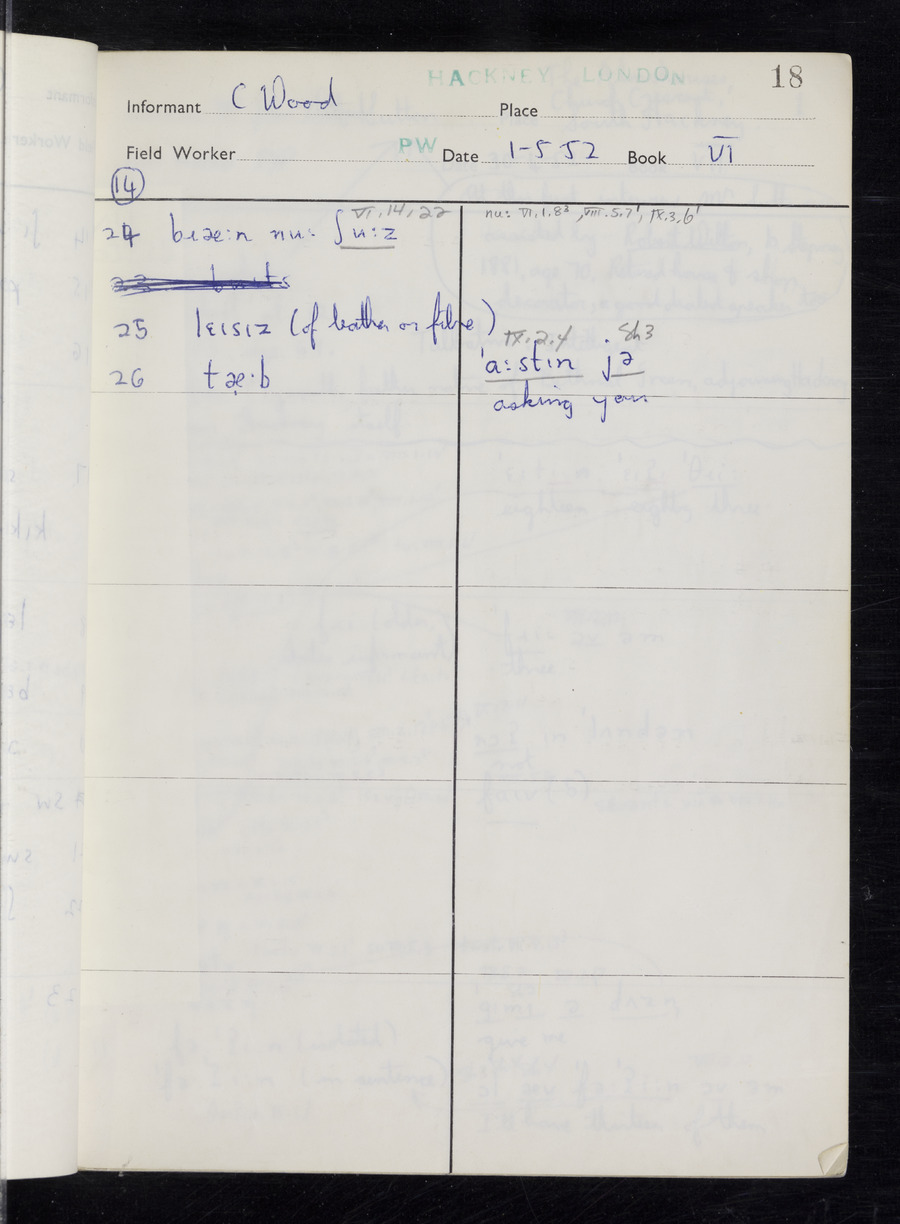 HACKNEY LONDON
18
Informant C Wood Place
Field Worker PW Date 1-5 52 Book VI
14
VI.14,22
24 bɹæ:n nu: ʃu:z
25 lɛɪsɪz (of leather or fibre)
26 tæ·b
nu: VI.1.8³, VIII.5.7¹, IX.3.6¹
IX.2.4 . Sh3
'ɑ:stɪn jə
asking you